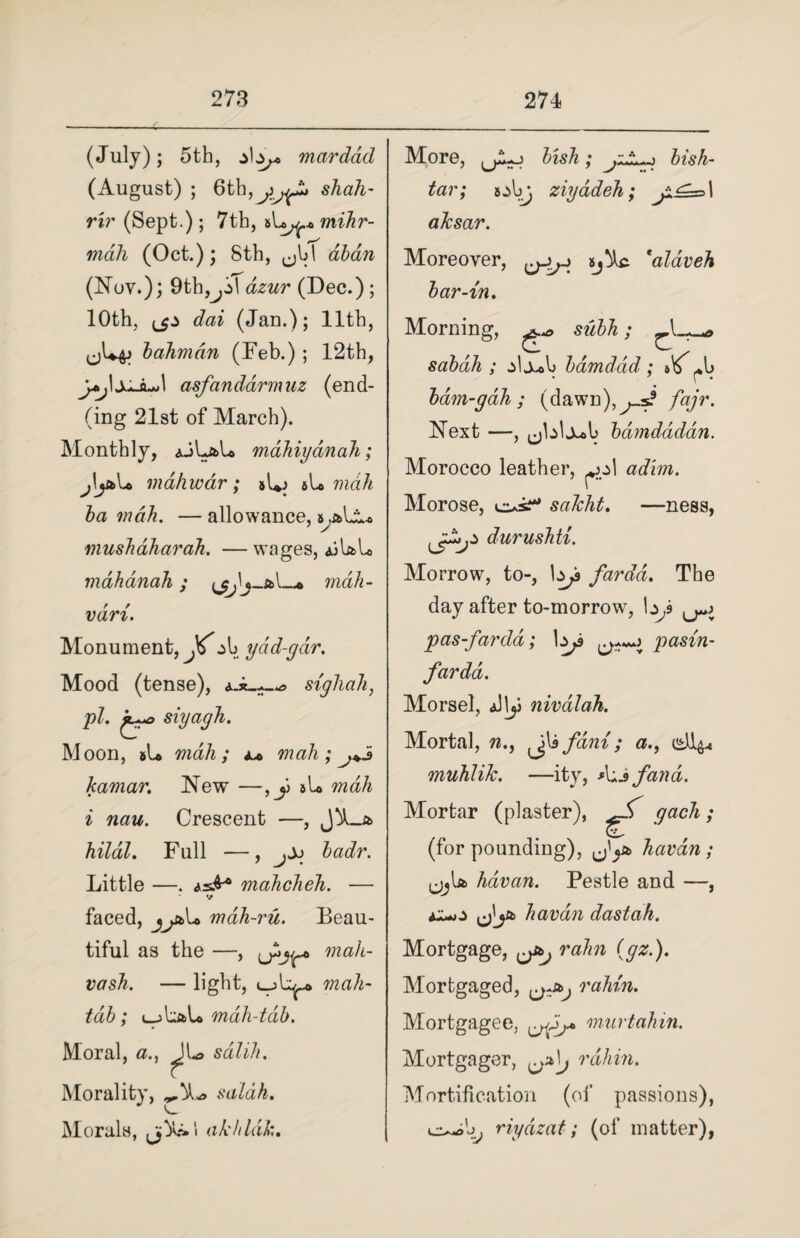 273
(July); 5th, مرداد mardád
(August) ; 6th, شهریر shah-
rír (Sept.); 7th, مهرماه mihr-
máh (Oct.); 8th, آبان ábán
(Nov.); 9th, آذر ázur (Dec.);
10th, دی dai (Jan.); 11th,
بهمان bahmán (Feb.) ; 12th,
اسفندارمز asfandármuz (end-
(ing 21st of March).
Monthly, ماهیانه máhiyánah;
ماهوار máhwár ; ماه بماه máh
ba máh. — allowance, مشاهره
musháharah. — wages, ماهانه
máhánah ; ماهواری máh-
várí.
Monument, یادگار yád-gár.
Mood (tense), صیغه síghah,
pl. صیغ siyagh.
Moon, ماه máh ; مه mah ; قمر
kamar. New —, ماه نو máh
i nau. Crescent —, هلال
hilál. Full —, بدر badr.
Little —. مهچه mahcheh. —
faced, ماهرو máh-rú. Beau-
tiful as the —, مهوش mah-
vash. — light, مهتاب mah-
táb ; ماهتاب máh-táb.
Moral, a., صالح sálih.
Morality, صلاح saláh.
Morals, اخلاق akhlák.
274
More, بیش bísh ; بیشتر bísh-
tar; زیاده ziyádeh ; اکثر
aksar.
Moreover, علاوه برین 'aláveh
bar-ín.
Morning, صبح súbh ; صباح
sabáh ; بامداد bámdád ; بام گاه
bám-gáh ; (dawn), فجر fajr.
Next —, بامدادان bámdádán.
Morocco leather, ادیم adím.
Morose, سخت sakht. —ness,
درشتی durushtí.
Morrow, to-, فردا fardá. The
day after to-morrow, پس فردا
pas-fardá ; پسین فردا pasín-
fardá.
Morsel, نواله niválah.
Mortal, n., فانی fání ; a., مهلك
muhlik. —ity, فناء faná.
Mortar (plaster), گچ gach ;
(for pounding), هوان haván ;
هاون hávan. Pestle and —,
هوان دسته haván dastah.
Mortgage, رهن rahn (gz.).
Mortgaged, رهین rahín.
Mortgagee, مرتهن murtahin.
Mortgager, راهن ráhin.
Mortification (of passions),
ریاضت riyázat ; (of matter),